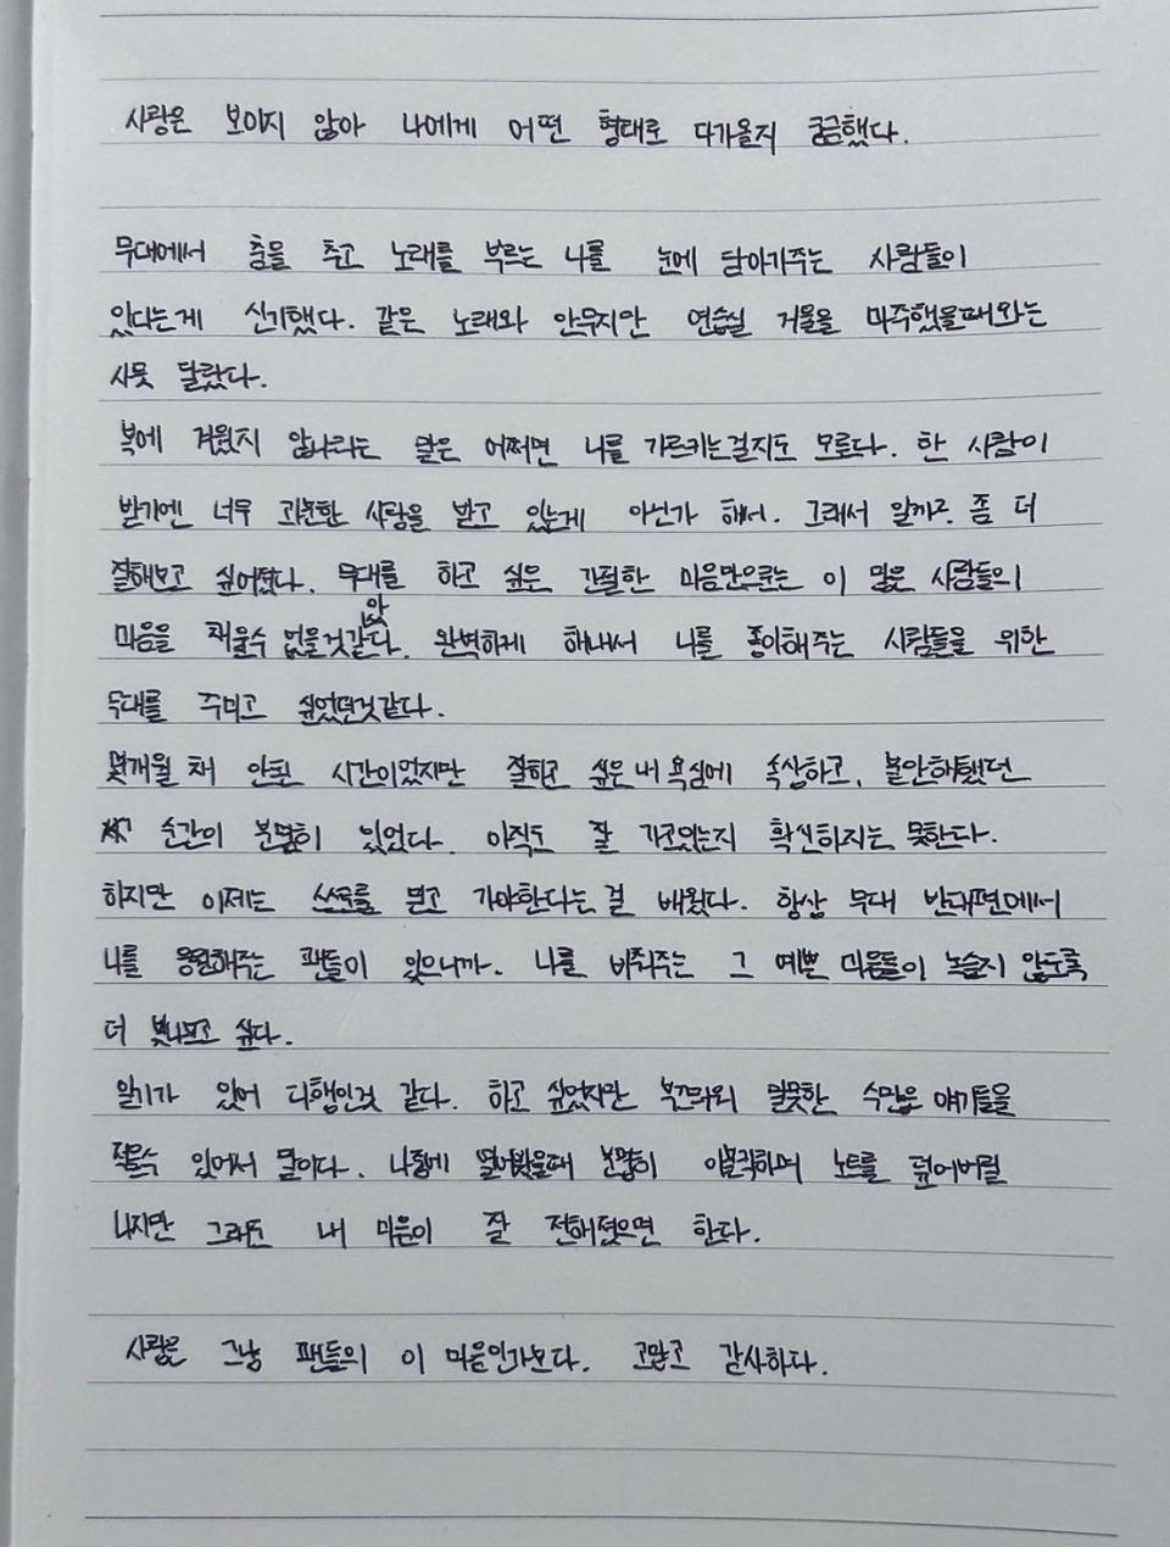 사랑은 보이지 않아 나에게 어떤 형태로 다가올지 궁금했다.
무대에서 춤을 추고 노래를 부르는 나를 눈에 담아가주는 사람들이
있다는게 신기했다. 같은 노래와 안무지만 연습실 거울을 마주했을때와는
사뭇 달랐다.
복에 겨웠지 않나라는 말은 어쩌면 나를 가르키는걸지도 모르다. 한 사람이
받기엔 너무 과분한 사랑을 받고 있는게 아닌가 해서. 그래서 일까? 좀 더
잘해보고 싶어졌다. 무대를 하고 싶은 간절한 마음만으로는 이 많은 사람들의
마음을 채울수 없을것같았다. 완벽하게 해내서 나를 좋아해주는 사람들을 위한
무대를 꾸미고 싶었던것같다.
몇개월 채 안된 시간이었지만 잘하고 싶은 내 욕심에 속상하고, 불안해했던
순간이 분명히 있었다. 아직도 잘 가고있는지 확신하지는 못한다.
하지만 이제는 스스로를 믿고 가야한다는 걸 배웠다. 항상 무대 반대편에서
나를 응원해주는 팬들이 있으니까. 나를 비춰주는 그 예쁜 마음들이 녹슬지 않도록
더 빛나보고 싶다.
일기가 있어 다행인것 같다. 하고 싶었지만 부끄러워 말못한 수많은 얘기들을
적을수 있어서 말이다. 나중에 열어봤을때 분명히 이불킥하며 노트를 덮어버릴
나지만 그래도 내 마음이 잘 전해졌으면 한다.
사랑은 그냥 팬들의 이 마음인가보다. 고맙고 감사하다.